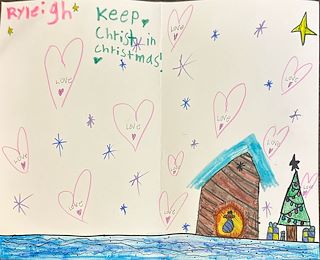 Ryleigh
Keep
Christ in
christmas!
LOVE
LOVE
LOVE
LOVE
LOVE
LOVE
LOVE
LOVE
LOVE